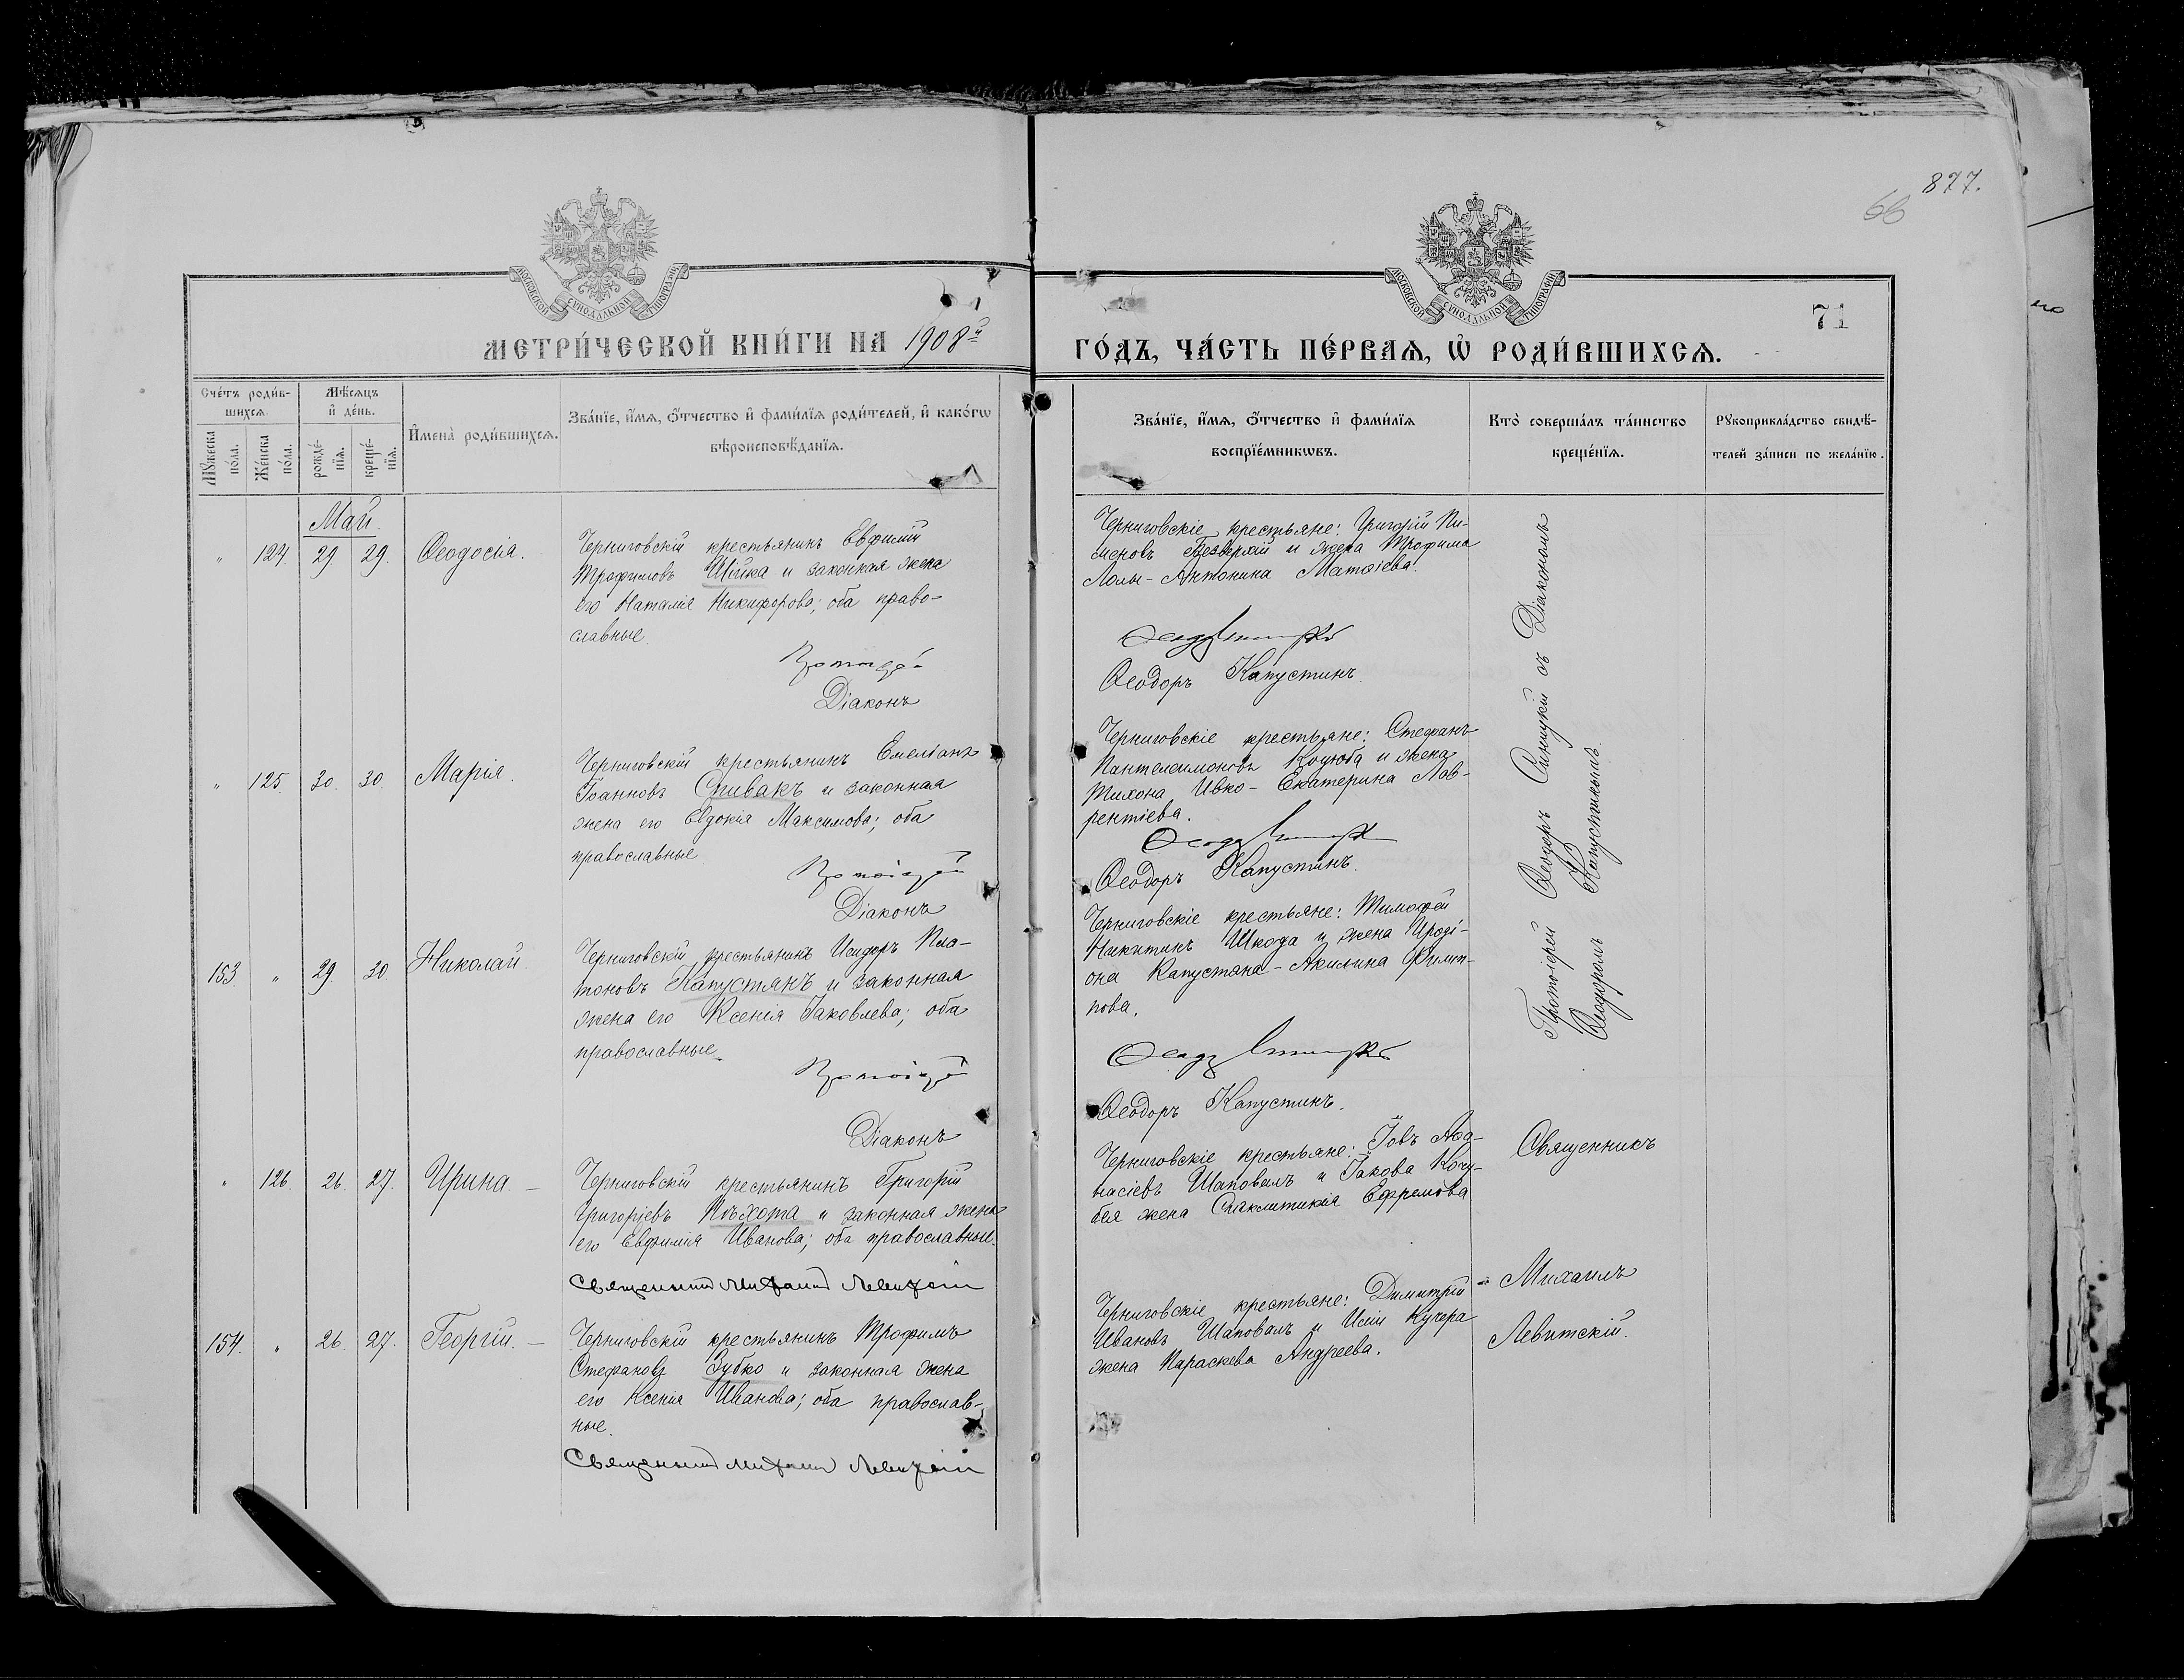 877.
66
71
МОСКОВСКОЙ СУНОДАЛЬНОЙ ТИПОГРАФІИ
МОСКОВСКОЙ СУНОДАЛЬНОЙ ТИПОГРАФІИ
МЕТРИ́ЧЕСКОЙ КНИ́ГИ НА 1908й
ГО́ДЪ, ЧА́СТЬ ПЕ́РВАѦ, Ѡ҆ РОДИ́ВШИХСѦ.
Сче́тъ роди́в-
шихсѧ.
Мꙋ́жеска по́ла.
Же́нска по́ла.
Мѣ́сѧцъ и҆ де́нь.
рожде́-
нїѧ.
креще́-
нїѧ.
И҆мена̀ роди́вшихсѧ.
Зва́нїе, и҆́мѧ, ѻ҆́тчество и҆ фами́лїѧ роди́телей, и҆ како́гѡ
вѣроисповѣ́данїѧ.
Зва́нїе, и҆́мѧ, ѻ҆́тчество и҆ фами́лїѧ
воспрїе́мникѡвъ.
Кто̀ соверша́лъ та́инство
креще́нїѧ.
Рꙋкоприкла́дство свидѣ́-
телей за́писи по жела́нїю.
Май.
" 124. 29 29. Ѳеодосія.
Черниговскій крестьянинъ Евфимій
Трофимовъ Шійка и законная жена
его Наталія Никифорова; оба право-
славные.
Протоіерей
Діаконъ
Черниговскіе крестьяне: Григорій Пи-
меновъ Безверхій и жена Трофима
Лолы - Антонина Матѳіева.
Ѳеодоръ Капустинъ.
" 125. 30. 30. Марія.
Черниговскій крестьянинъ Емеліанъ
Іоанновъ Спивакъ и законная
жена его Евдокія Максимова; оба
православные
Протоіерей
Діаконъ
Черниговскіе крестьяне: Стефанъ
Пантелеимоновъ Коцюба и жена
Тихона Ивко - Екатерина Лав-
рентіева.
Ѳеодоръ Капустинъ.
153. " 29. 30 Николай.
Черниговскій крестьянинъ Исидоръ Пла-
тоновъ Капустянъ и законная
жена его Ксенія Іаковлева; оба
православные
Протоіерей
Діаконъ
Черниговскіе крестьяне: Тимофей
Никитинъ Шкода и жена Ироді-
она Капустяна - Акилина Филип-
пова.
Ѳеодоръ Капустинъ.
Протоіерей Ѳеодоръ Синицкій съ Діакономъ
Ѳеодоромъ Капустинымъ.
" 126. 26. 27. Ирина. —
Черниговскій крестьянинъ Григорій
Григоріевъ Пѣхота и законная жена
его Евфимія Иванова; оба православные.
Священникъ Михаилъ Левитскій
Черниговскіе крестьяне: Іовъ Аѳа-
насіевъ Шаповалъ и Іакова Кочу-
бея жена Сигклитикія Ефремова
Священникъ
Михаилъ
Левитскій.
154. " 26. 27. Георгій. —
Черниговскій крестьянинъ Трофимъ
Стефановъ Зубко и законная жена
его Ксенія Иванова; оба православ-
ные.
Священникъ Михаилъ Левитскій
Черниговскіе крестьяне: Димитрій
Ивановъ Шаповалъ и Иліи Кучера
жена Параскева Андреева.